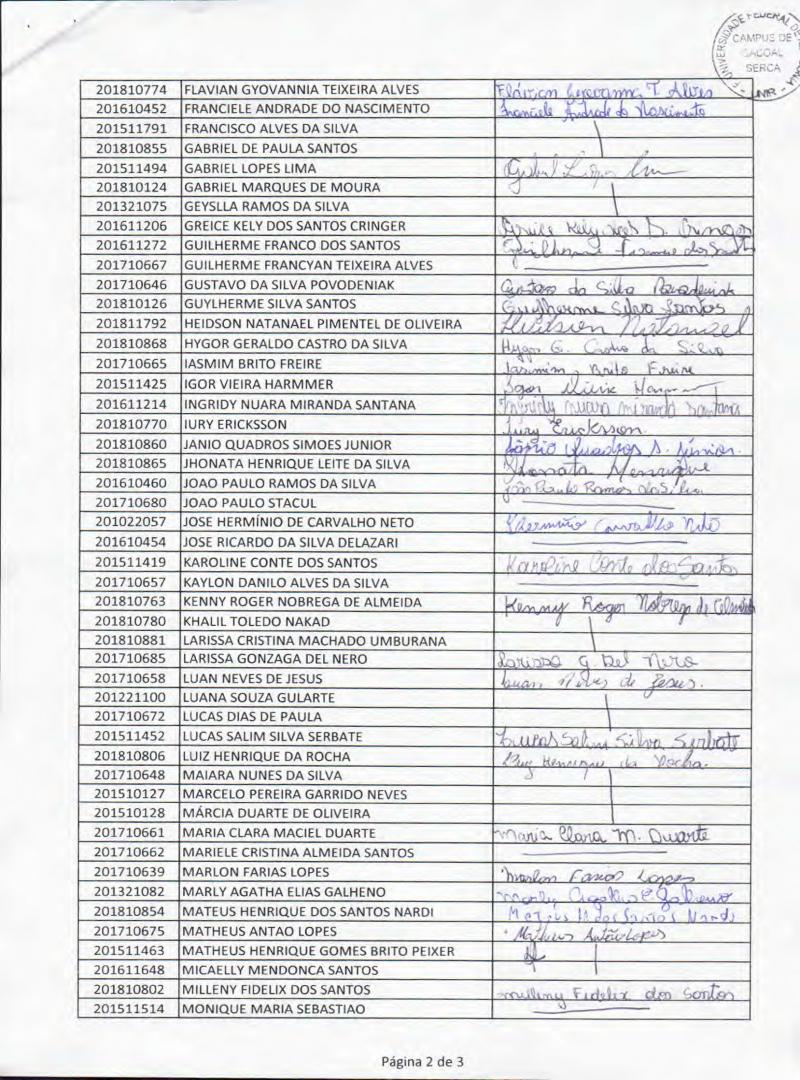 UNIVERSIDADE FEDERAL DE
CAMPUS DE
CACOAL
SERCA
UNIR
201810774 FLAVIAN GYOVANNIA TEIXEIRA ALVES Flávian Gyovanna T. Alves
201610452 FRANCIELE ANDRADE DO NASCIMENTO Franciele Andrade do Nascimento
201511791 FRANCISCO ALVES DA SILVA
201810855 GABRIEL DE PAULA SANTOS
201511494 GABRIEL LOPES LIMA Gabriel Lopes Lima
201810124 GABRIEL MARQUES DE MOURA
201321075 GEYSLLA RAMOS DA SILVA
201611206 GREICE KELY DOS SANTOS CRINGER Greice Kely dos S. Cringer
201611272 GUILHERME FRANCO DOS SANTOS Guilherme Franco dos Santos
201710667 GUILHERME FRANCYAN TEIXEIRA ALVES
201710646 GUSTAVO DA SILVA POVODENIAK Gustavo da Silva Povodeniak
201810126 GUYLHERME SILVA SANTOS Guylherme Silva Santos
201811792 HEIDSON NATANAEL PIMENTEL DE OLIVEIRA Heidson Natanael
201810868 HYGOR GERALDO CASTRO DA SILVA Hygor G. Castro da Silva
201710665 IASMIM BRITO FREIRE Iasmim Brito Freire
201511425 IGOR VIEIRA HARMMER Igor Vieira
201611214 INGRIDY NUARA MIRANDA SANTANA Ingridy nuara miranda santana
201810770 IURY ERICKSSON Iury Ericksson.
201810860 JANIO QUADROS SIMOES JUNIOR Jânio Quadros S. Júnior.
201810865 JHONATA HENRIQUE LEITE DA SILVA Jhonata Henrique
201610460 JOAO PAULO RAMOS DA SILVA João Paulo Ramos da Silva
201710680 JOAO PAULO STACUL
201022057 JOSE HERMÍNIO DE CARVALHO NETO Hermínio Carvalho Neto
201610454 JOSE RICARDO DA SILVA DELAZARI
201511419 KAROLINE CONTE DOS SANTOS Karoline Conte dos Santos
201710657 KAYLON DANILO ALVES DA SILVA
201810763 KENNY ROGER NOBREGA DE ALMEIDA Kenny Roger Nobrega de Almeida
201810780 KHALIL TOLEDO NAKAD
201810881 LARISSA CRISTINA MACHADO UMBURANA
201710685 LARISSA GONZAGA DEL NERO Larissa G. Del Nero
201710658 LUAN NEVES DE JESUS Luan Neves de Jesus.
201221100 LUANA SOUZA GULARTE
201710672 LUCAS DIAS DE PAULA
201511452 LUCAS SALIM SILVA SERBATE Lucas Salim Silva Serbate
201810806 LUIZ HENRIQUE DA ROCHA Luiz Henrique da Rocha.
201710648 MAIARA NUNES DA SILVA
201510127 MARCELO PEREIRA GARRIDO NEVES
201510128 MÁRCIA DUARTE DE OLIVEIRA
201710661 MARIA CLARA MACIEL DUARTE Maria Clara M. Duarte
201710662 MARIELE CRISTINA ALMEIDA SANTOS
201710639 MARLON FARIAS LOPES Marlon Farias Lopes
201321082 MARLY AGATHA ELIAS GALHENO Marly Agatha E. Galheno
201810854 MATEUS HENRIQUE DOS SANTOS NARDI Mateus H. dos Santos Nardi
201710675 MATHEUS ANTAO LOPES Matheus Antão Lopes
201511463 MATHEUS HENRIQUE GOMES BRITO PEIXER
201611648 MICAELLY MENDONCA SANTOS
201810802 MILLENY FIDELIX DOS SANTOS Milleny Fidelix dos Santos
201511514 MONIQUE MARIA SEBASTIAO
Página 2 de 3